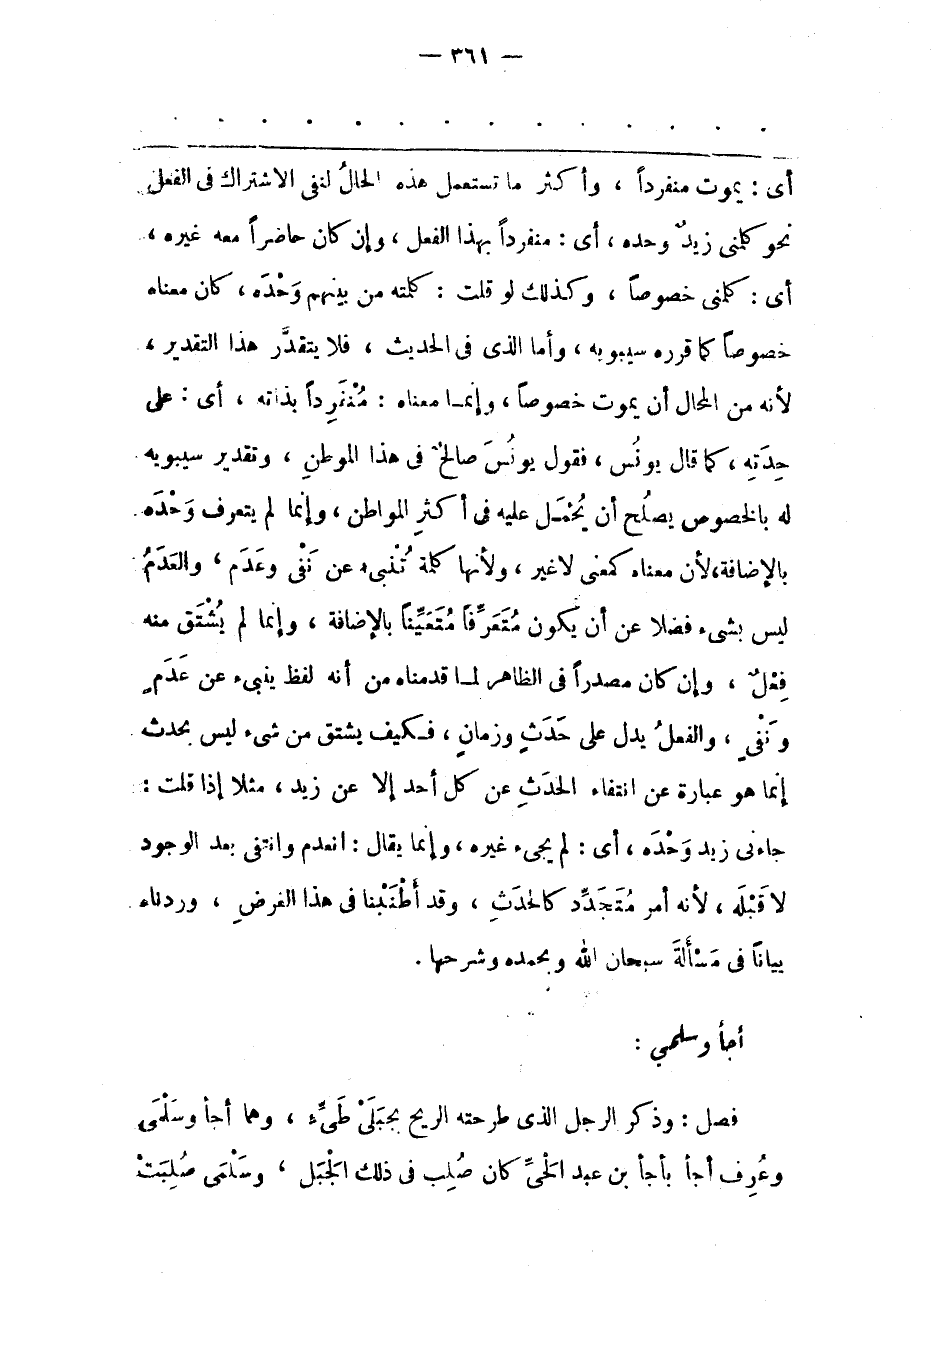 — ٣٦١ —
أى : يموت منفرداً ، وأكثر ما تستعمل هذه الحالُ لنفى الاشتراك فى الفعل
نحو كلمنى زيدٌ وحده ، أى : منفرداً بهذا الفعل ، وإن كان حاضراً معه غيره ،
أى : كلمنى خصوصاً ، وكذلك لو قلت : كلمته من بينهم وَحْدَه ، كان معناه
خصوصاً كما قرره سيبويه ، وأما الذى فى الحديث ، فلا يتقدَّر هذا التقدير ،
لأنه من المحال أن يموت خصوصاً ، وإنمـا معناه : مُنْفَرِداً بذاته ، أى : على
حِدَتِه ، كما قال يونُس ، فقول يونُسَ صالحٌ فى هذا الموطنِ ، وتقدير سيبويه
له بالخصوص يصلُح أن يُحْمَـل عليه فى أكثرِ المواطن ، وإنما لم يتعرف وَحْدَه
بالإضافة ،لأن معناه كمعنى لاغير ، ولأنها كلمة تُنْبىء عن نَفْى وعَدَم ، والعَدَمُ
ليس بشىء فضلا عن أن يكون مُتَعَرِّفاً مُتَعَيِّناً بالإضافة ، وإنما لم يُشْتَق منه
فِعْلٌ ، وإن كان مصدراً فى الظاهر لمـا قدمناه من أنه لفظ ينبىء عن عَدَمٍ
ونَفْىٍ ، والفعلُ يدل على حَدَثٍ وزمانٍ ، فـكيف يشتق من شىء ليس بحدث
إنما هو عبارة عن انتفاء الحَدَثِ عن كل أحد إلا عن زيد ، مثلا إذا قلت :
جاءنى زيد وَحْدَه ، أى : لم يجىء غيره ، وإنما يقال : انعدم وانتفى بعد الوجود
لا قَبْلَه ، لأنه أمر مُتَجَدِّد كالحَدَثِ ، وقد أَطْنَبْنا فى هذا الغرضِ ، وردناه
بياناً فى مَسْأَلةَ سبحان الله وبحمده وشرحها .
أجأ وسلمى :
فصل : وذكر الرجل الذى طرحته الريح بجَبَلَىْ طَىِّء ، وهما أجأ وسَلْمَى
وعُرِف أجأ بأجأ بن عبد الحَىِّ كان صُلِب فى ذلك الجْبَل ، وسَلْمَى صُلِبَتْ